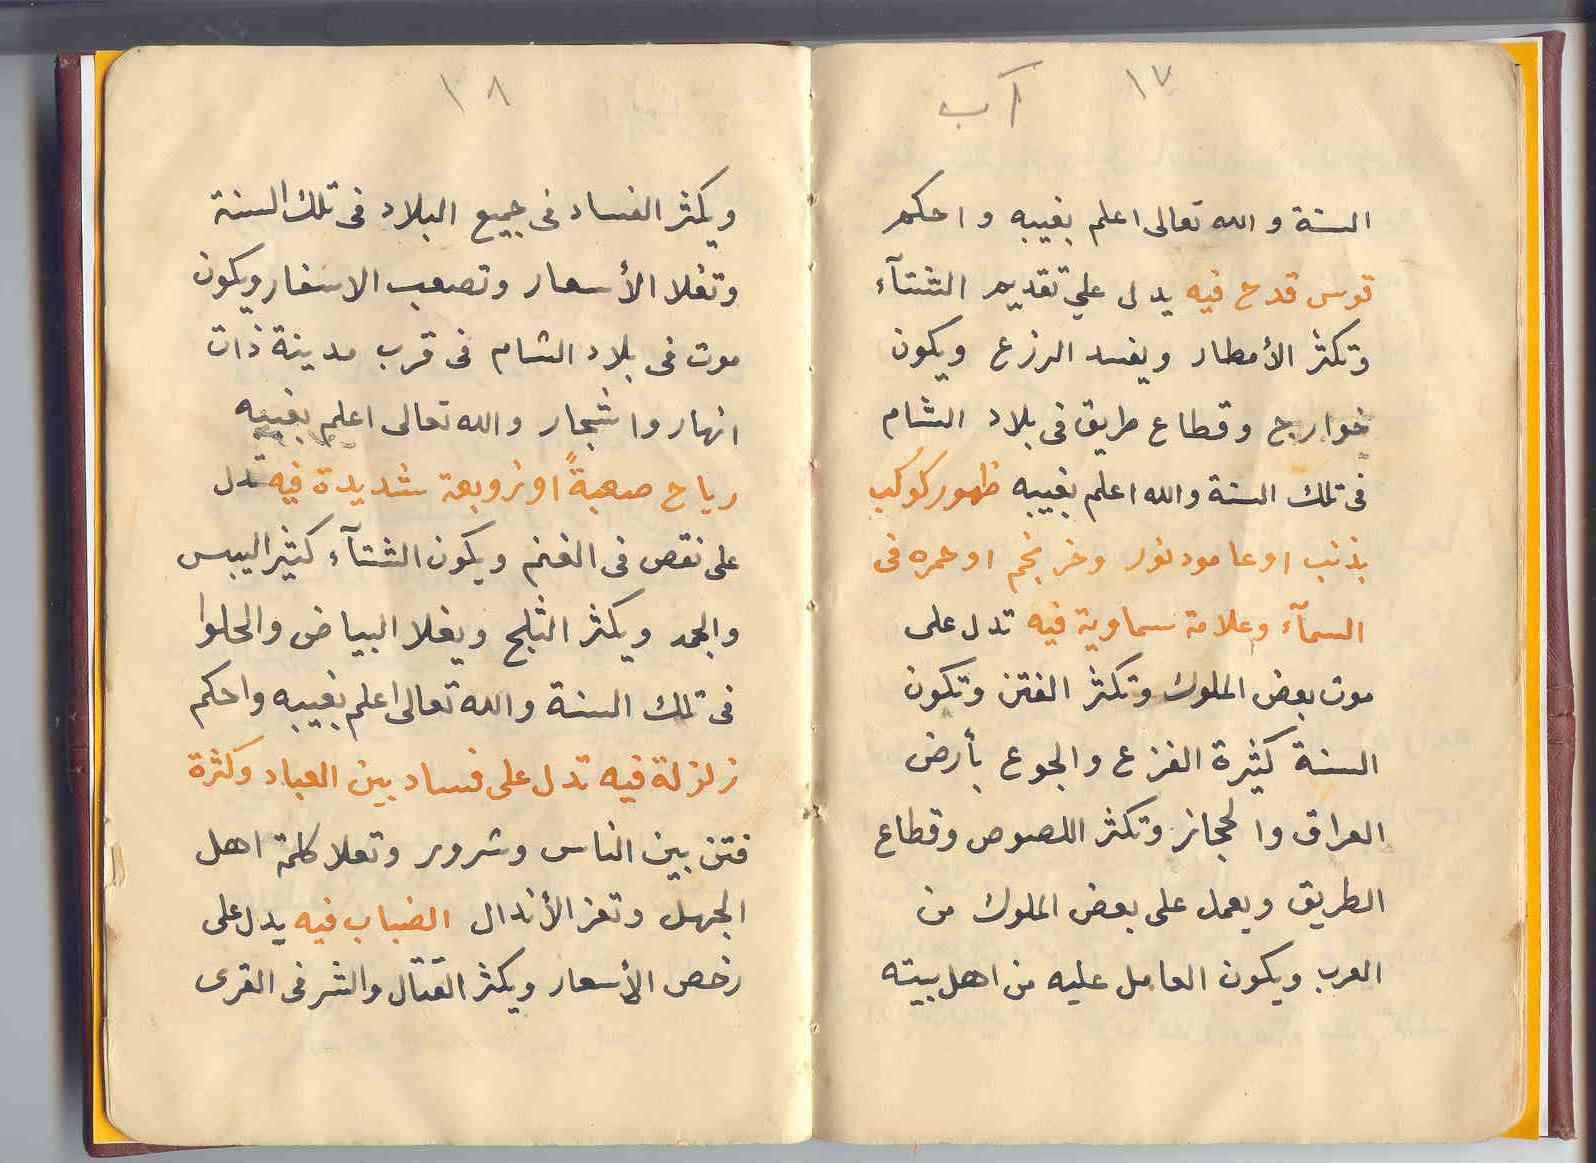 ١٧
آب
السنة والله تعالى اعلم بغيبه واحكم
قوس قدح فيه يدل علي تقديم الشتآء
وتكثر الأمطار ويفسد الزرع ويكون
خوارج وقطاع طريق فى بلاد الشام
فى تلك السنة والله اعلم بغيبه ظهور كوكب
بذنب اوعامود نور وخر نجم او حمره فى
السمآء وعلامة سماوية فيه تدل على
موت بعض الملوك وتكثر الفتن وتكون
السنة كثيرة الفزع والجوع بأرض
العراق والحجاز وتكثر اللصوص وقطاع
الطريق ويعمل على بعض الملوك من
العرب ويكون العامل عليه من اهل بيته
١٨
ويكثر الفساد فى جميع البلاد فى تلك السنة
وتغلا الأسعار وتصعب الاسفار ويكون
موت فى بلاد الشام فى قرب مدينة ذات
انهار واشجار والله تعالى اعلم بغيبه
رياح صعبةً او زوبعة شديدة فيه تدل
على نقص فى الغنم ويكون الشتآء كثير اليبس
والجمد ويكثر الثلج ويغلا البياض والحلوا
فى تلك السنة والله تعالى اعلم بغيبه واحكم
زلزلة فيه تدل على فساد بين العباد وكثرة
فتن بين الناس وشرور وتعلا كلمة اهل
الجهل وتعز الأنذال الضباب فيه يدل على
رخص الأسعار ويكثر القتال والشر فى القرى